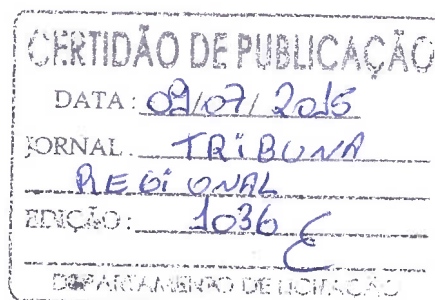 CERTIDÃO DE PUBLICAÇÃO
DATA: 09/07/2015
JORNAL: TRIBUNA
REGIONAL
EDIÇÃO: 1036
DEPARTAMENTO DE LICITAÇÃO